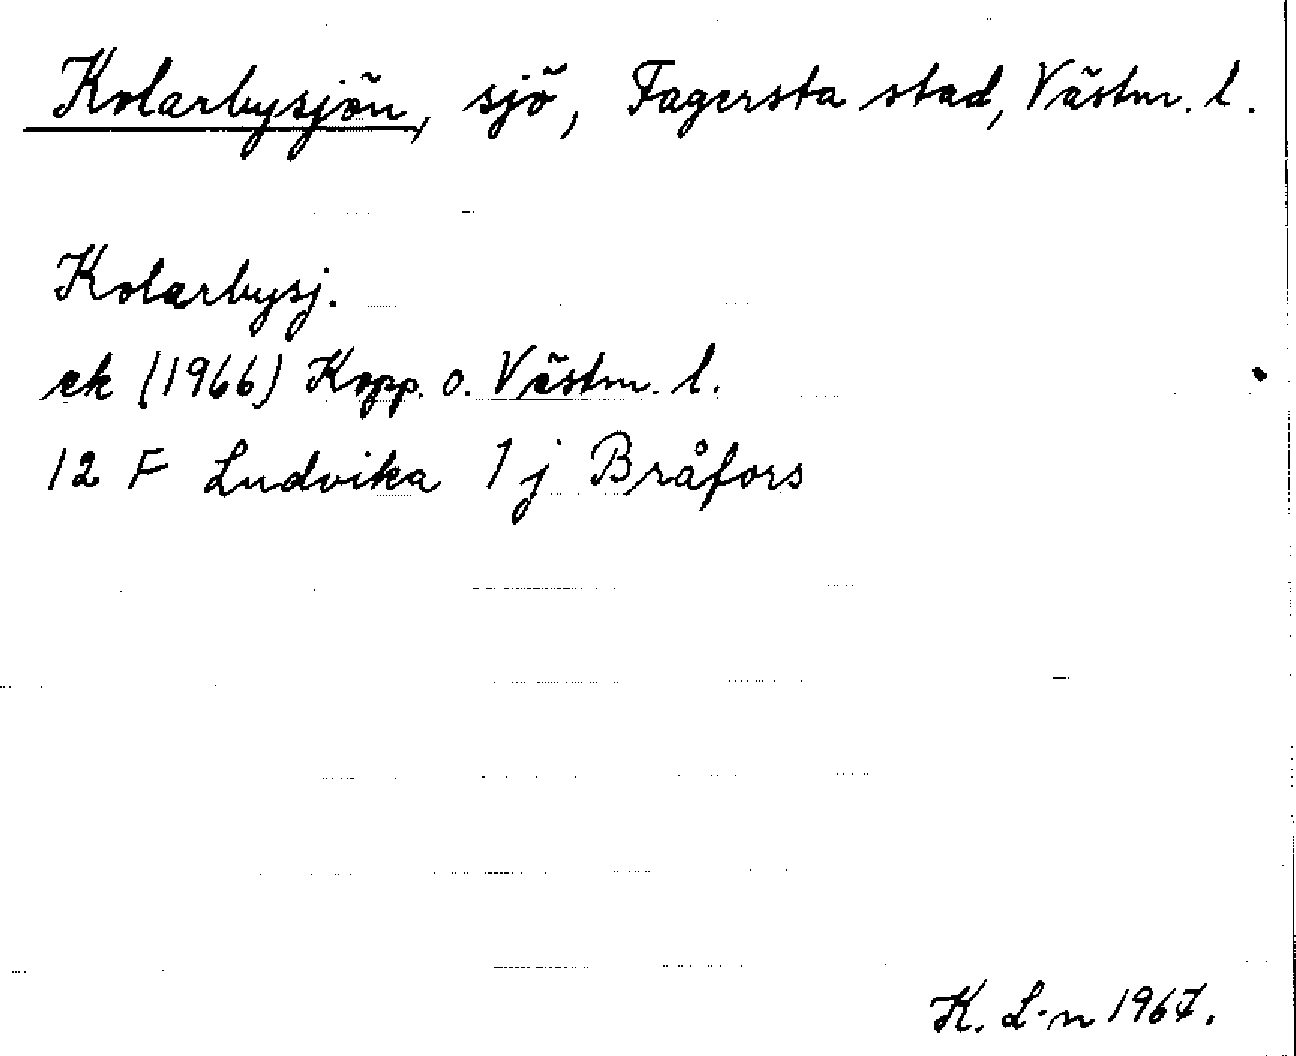 Kolarbysjön, sjö, Fagersta stad, Västm. l.
Kolarbysj.
ek (1966) Kopp. o. Västm. l.
12 F Ludvika 1 j Bråfors
K. L-n 1967.